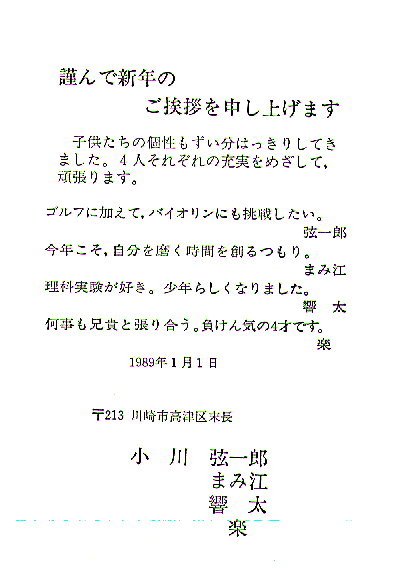 謹んで新年の
ご挨拶を申し上げます
子供たちの個性もずい分はっきりしてき
ました。4人それぞれの充実をめざして,
頑張ります。
ゴルフに加えて,バイオリンにも挑戦したい。
弦一郎
今年こそ,自分を磨く時間を創るつもり。
まみ江
理科実験が好き。少年らしくなりました。
響 太
何事も兄貴と張り合う。負けん気の4才です。
楽
1989年1月1日
〒213 川崎市高津区末長
小 川 弦一郎
まみ江
響 太
楽